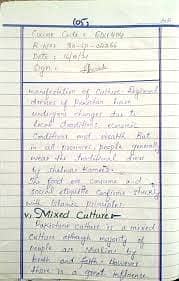 (05)
Course Code : EDU404
Date :
Sign :
manifestation of Culture. Regional
dresses of Pakistan have
undergone changes due to
local traditions, economic
conditions and wealth. But
in all provinces people generally
wear the traditional dress
by shalwar Kameez.
In food we consume and
social etiquette confirm strictly
with Islamic principles.
v, Mixed Culture
Pakistani culture is a mixed
culture although majority of
people are Muslims by
birth and faith. However
there is a great influence